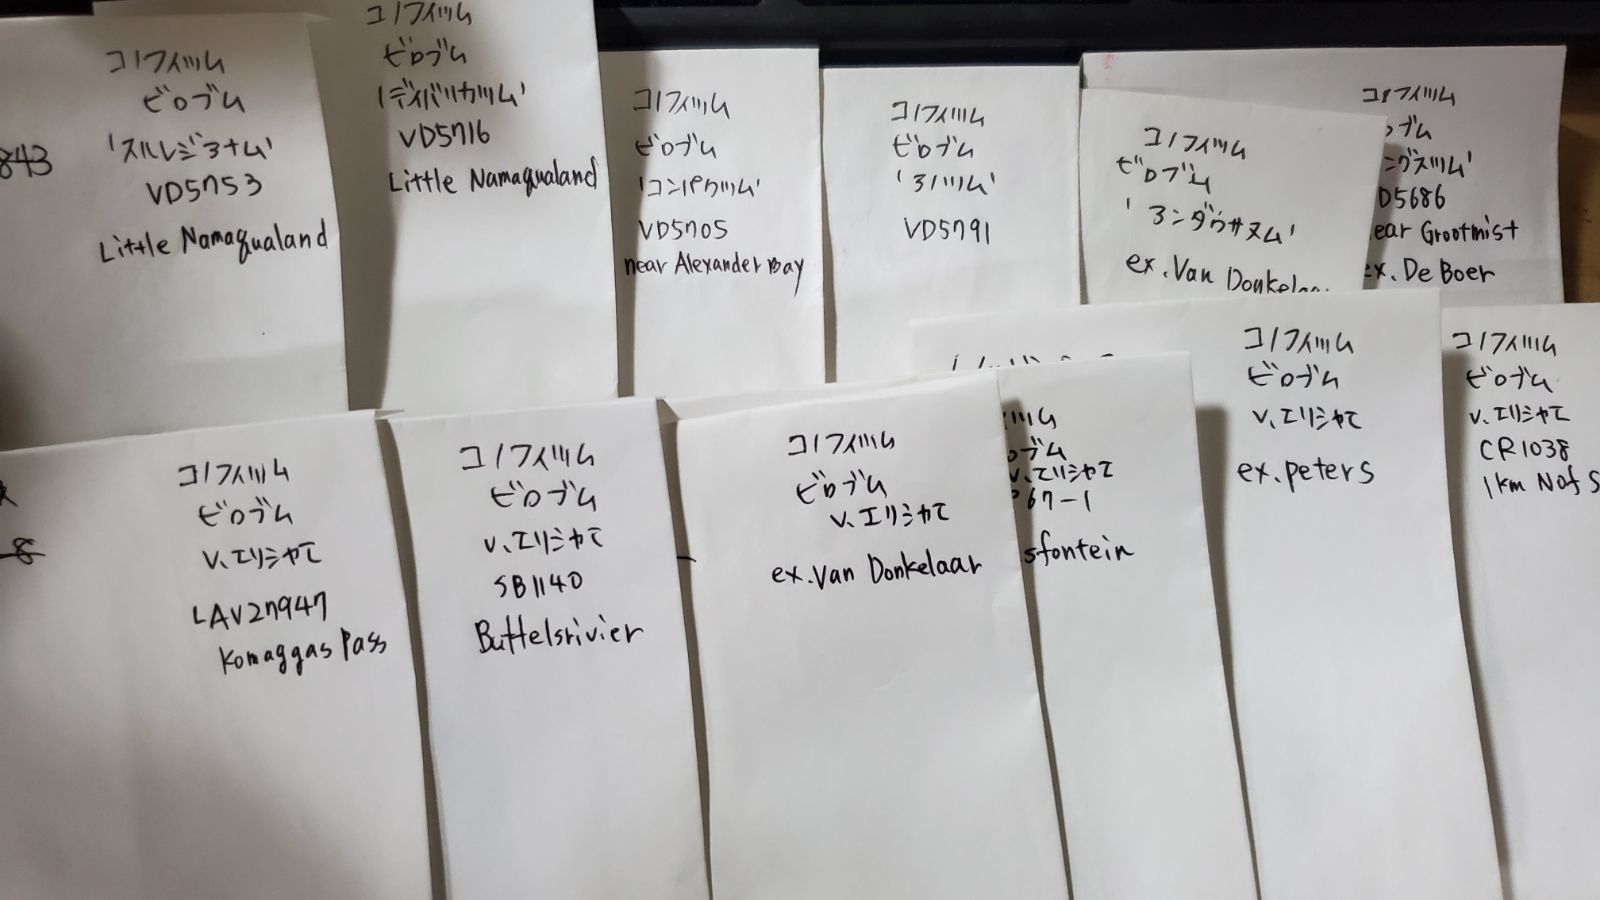 コノフィツム
ビロブム
843
'スルレジアナム'
VD5753
Little Namaqualand
コノフィツム
ビロブム
'ディバリカツム'
VD5716
Little Namaqualand
コノフィツム
ビロブム
'コンパクツム'
VD5705
near Alexander Bay
コノフィツム
ビロブム
VD5791
コノフィツム
ビロブム
ex. Van Donkelaa
コノフィツム
ロブム
D5686
ear Grootmist
ex. De Boer
コノフィツム
ビロブム
v. エリシャエ
LAV27947
Komaggas Pass
8
コノフィツム
ビロブム
v. エリシャエ
SB1140
Buffelsrivier
コノフィツム
ビロブム
v. エリシャエ
ex. Van Donkelaar
ツム
ロブム
v. エリシャエ
67-1
sfontein
コノフィツム
ビロブム
v. エリシャエ
ex. peters
コノフィツム
ビロブム
v. エリシャエ
CR1038
1km N of S